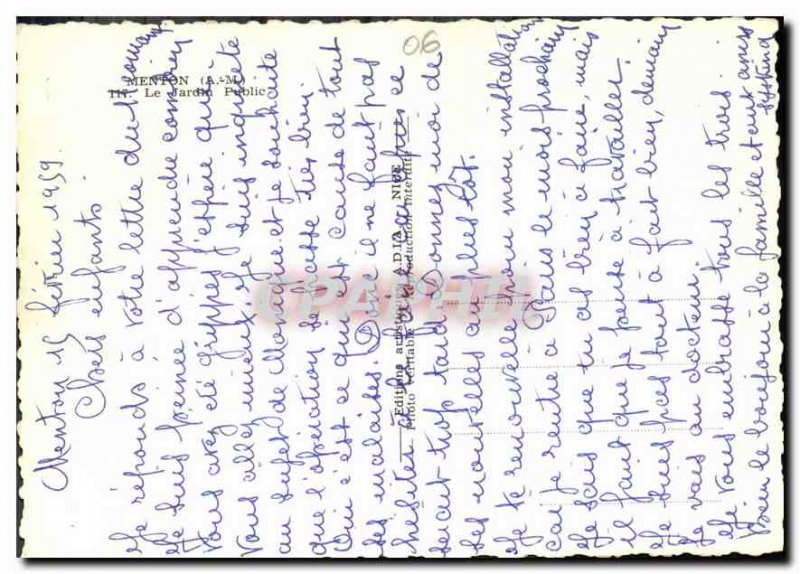 MENTON (A.-M.)
117. Le Jardin Public
06
Editions artistiques ADIA, NICE
Photo véritable Reproduction interdite
CPAPHIL
Menton 15 février 1959
Chers enfants
Je réponds à votre lettre du
Je suis peinée d'apprendre combien
vous avez été grippés, j'espère que
vous allez mieux, je suis inquiète
au sujet de et je souhaite
que l'opération se passe très bien.
Oui c'est ce qui est cause de tout
ses malaises. Donc il ne faut pas
hésiter ce
serait trop tard. Donnez moi de
ses nouvelles au plus tôt.
Je te renouvelle pour mon installation
car je rentre à Paris le mois prochain
Je sais que tu as bien à faire, mais
il faut que je pense à travailler.
Je suis pas tout à fait bien, demain
je vais au docteur.
Je vous embrasse tous les trois.
Bien le bonjour à la famille et aux amis